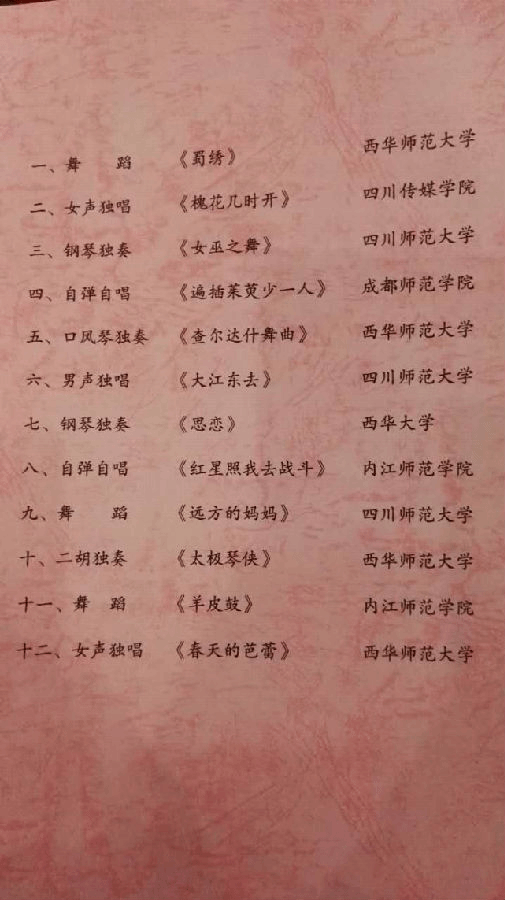 一、舞 蹈 《蜀绣》 西华师范大学
二、女声独唱 《槐花几时开》 四川传媒学院
三、钢琴独奏 《女巫之舞》 四川师范大学
四、自弹自唱 《遍插茱萸少一人》 成都师范学院
五、口风琴独奏 《查尔达什舞曲》 西华师范大学
六、男声独唱 《大江东去》 四川师范大学
七、钢琴独奏 《思恋》 西华大学
八、自弹自唱 《红星照我去战斗》 内江师范学院
九、舞 蹈 《远方的妈妈》 四川师范大学
十、二胡独奏 《太极琴侠》 西华师范大学
十一、舞 蹈 《羊皮鼓》 内江师范学院
十二、女声独唱 《春天的芭蕾》 西华师范大学